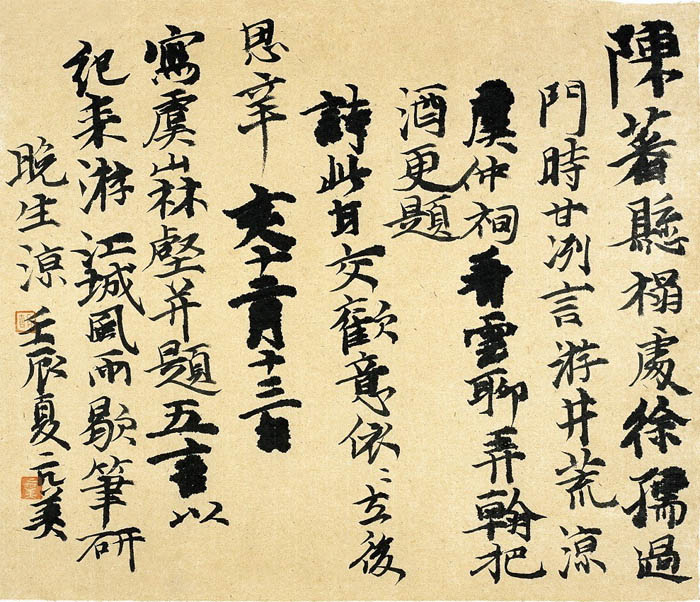 陳蕃懸榻處徐孺過
門時甘冽言游井荒涼
虞仲祠看雲聊弄翰把
酒更題
詩此日交歡意依〻在後
思辛亥十二月十三日
寫虞山林壑并題五言以
紀来游江城風雨歇筆研
晚生涼壬辰夏元美